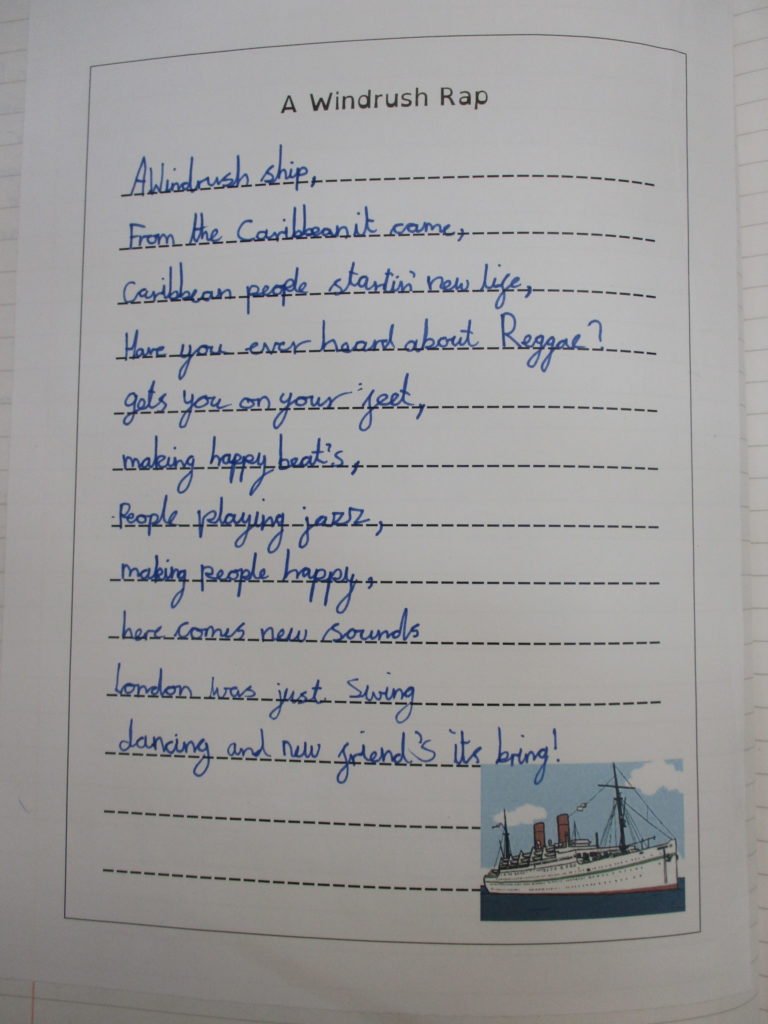 A Windrush Rap
A Windrush ship,
From the Caribbean it came,
Caribbean people startin' new life,
Have you ever heard about Reggae?
gets you on your feet,
making happy beat's,
People playing jazz,
making people happy,
here comes new sounds
London was just Swing
dancing and new friend's its bring!